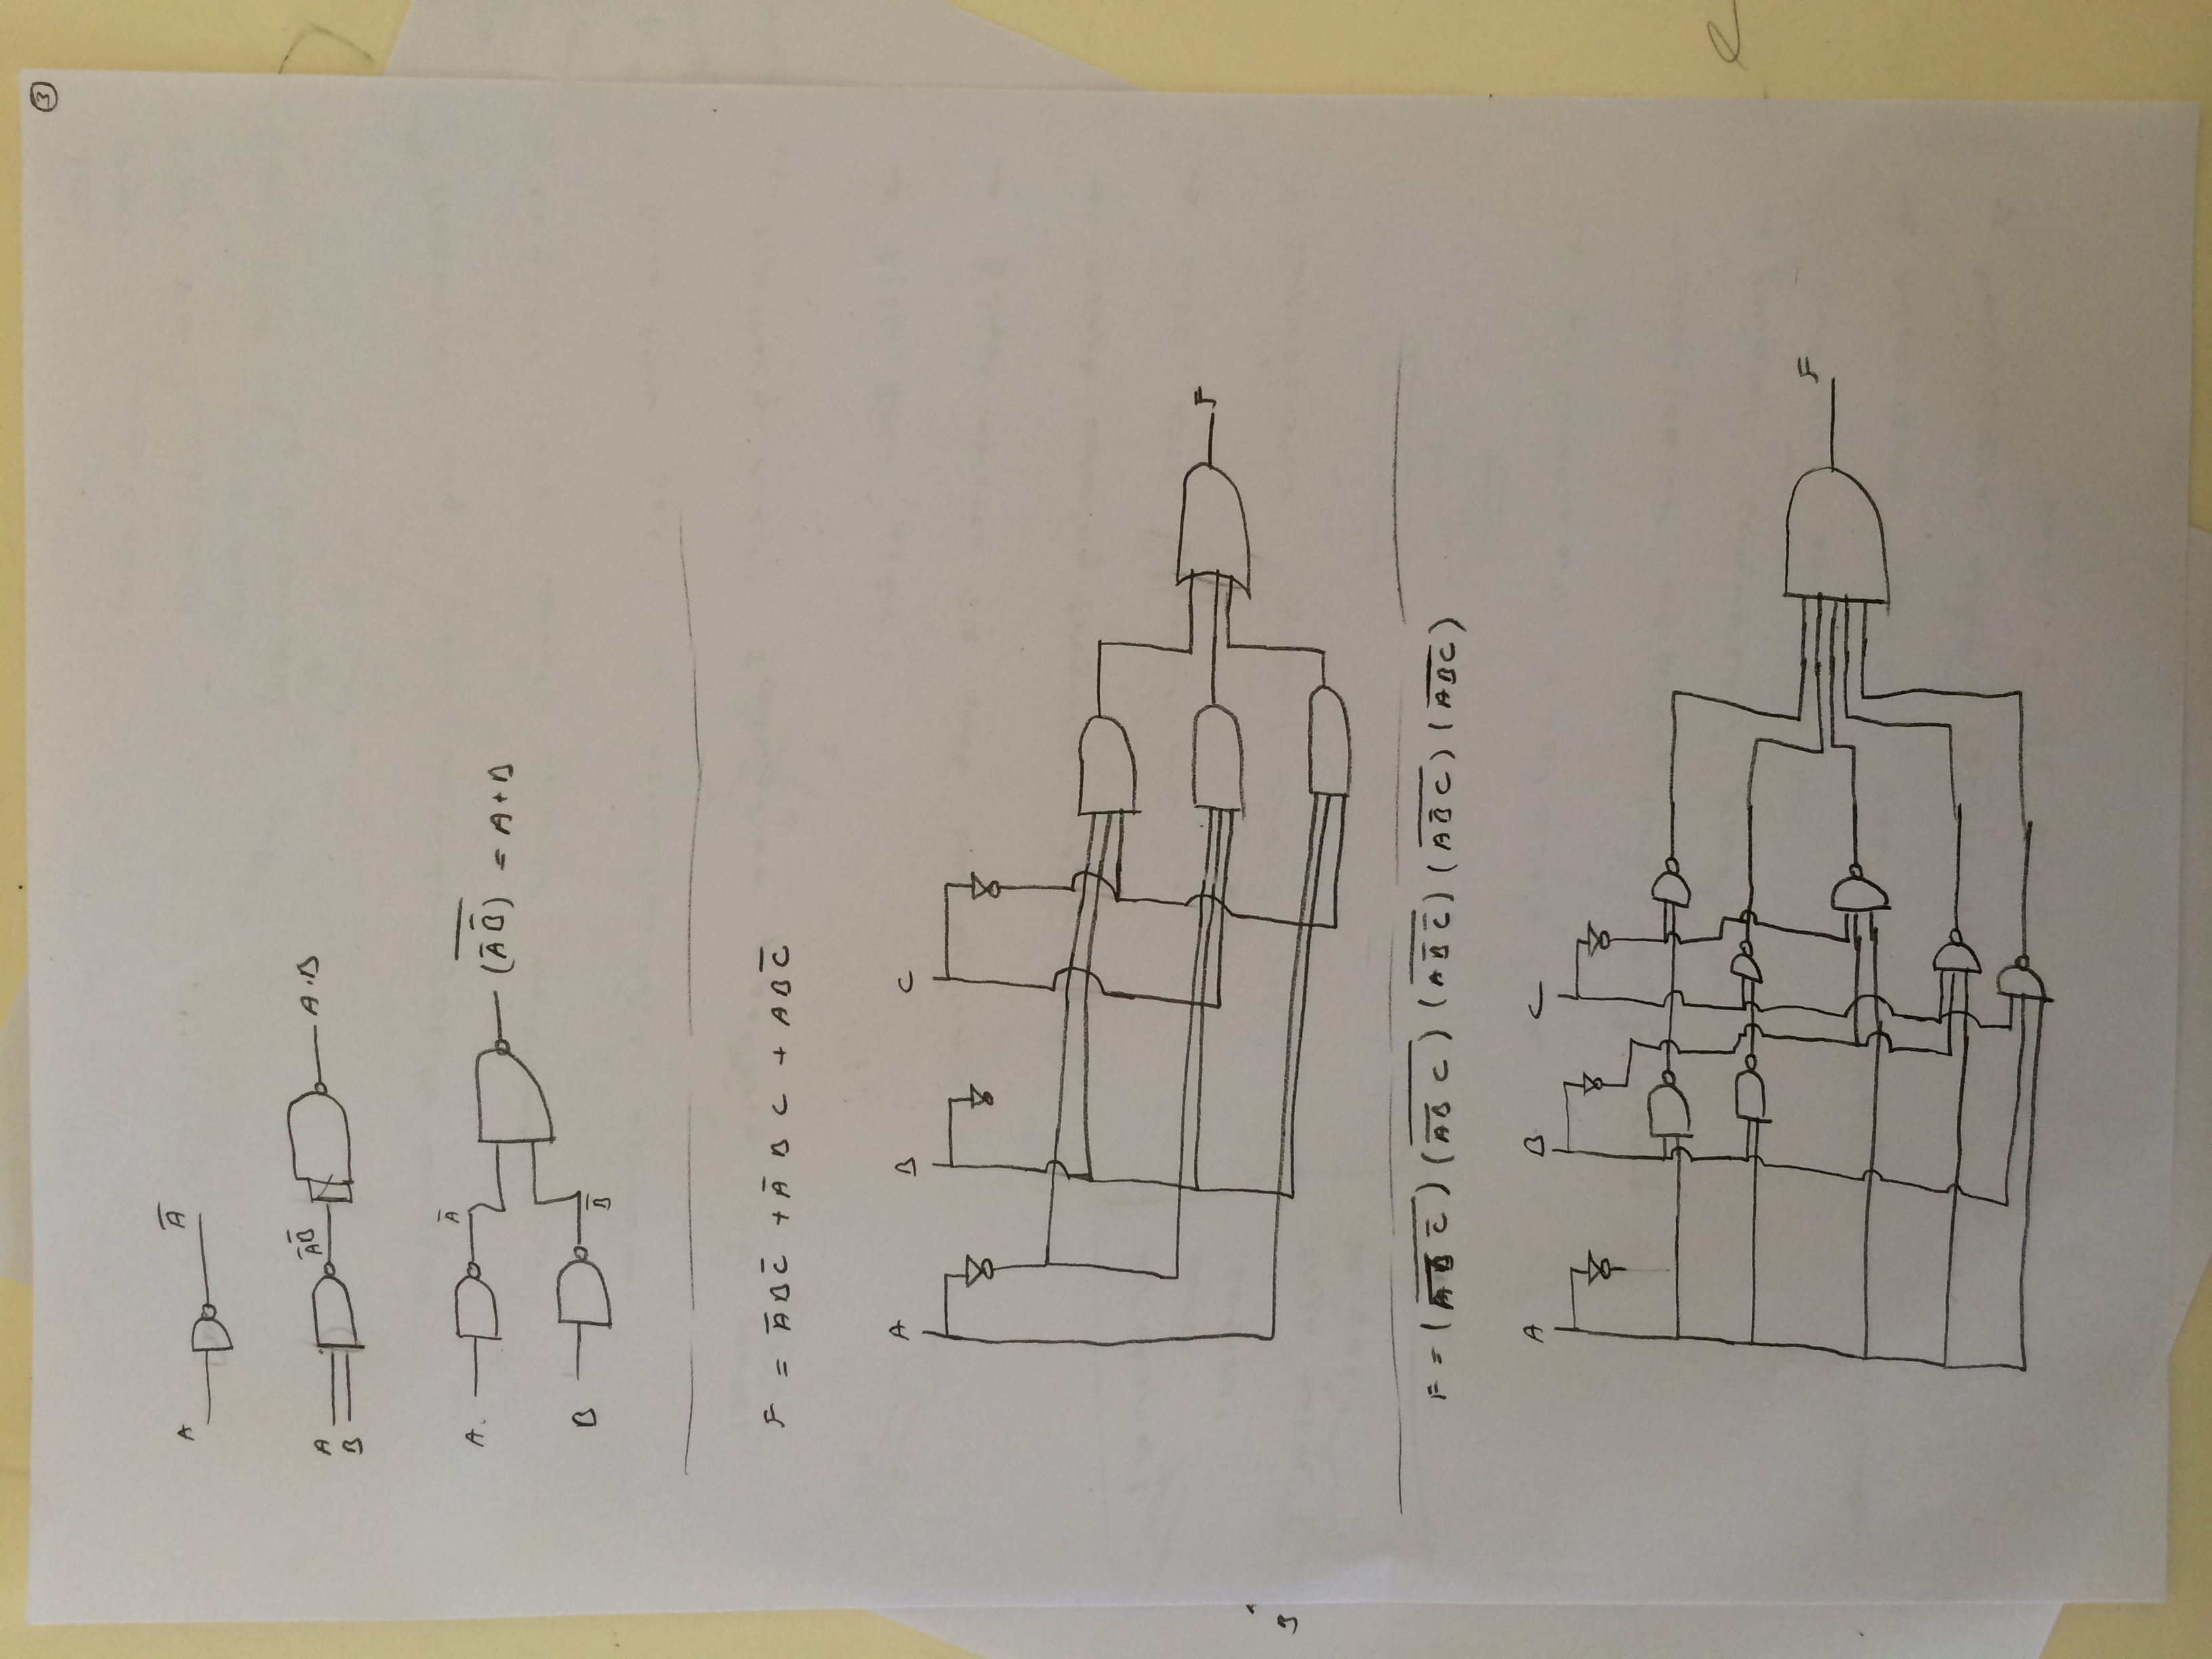 3
A A̅
A B A̅ B̅ A.B
A. A̅
(A̅ B̅)̅ = A+B
B B̅
F = A̅ B C̅ + A̅ B C + A B C̅
A B C
F
F = (A̅ B̅ C̅)̅ (A̅ B̅ C)̅ (A B̅ C̅)̅ (A B̅ C)̅ (A B C)̅
A B C
F